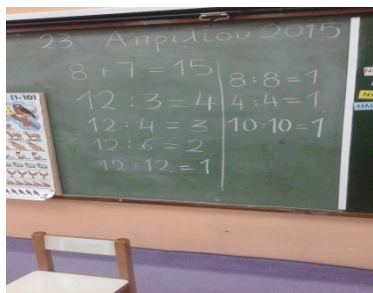 23 Απριλίου 2015
8 + 7 = 15
12 : 3 = 4
12 : 4 = 3
12 : 6 = 2
12 : 12 = 1
8 : 8 = 1
4 : 4 = 1
10 : 10 = 1
(1-10)